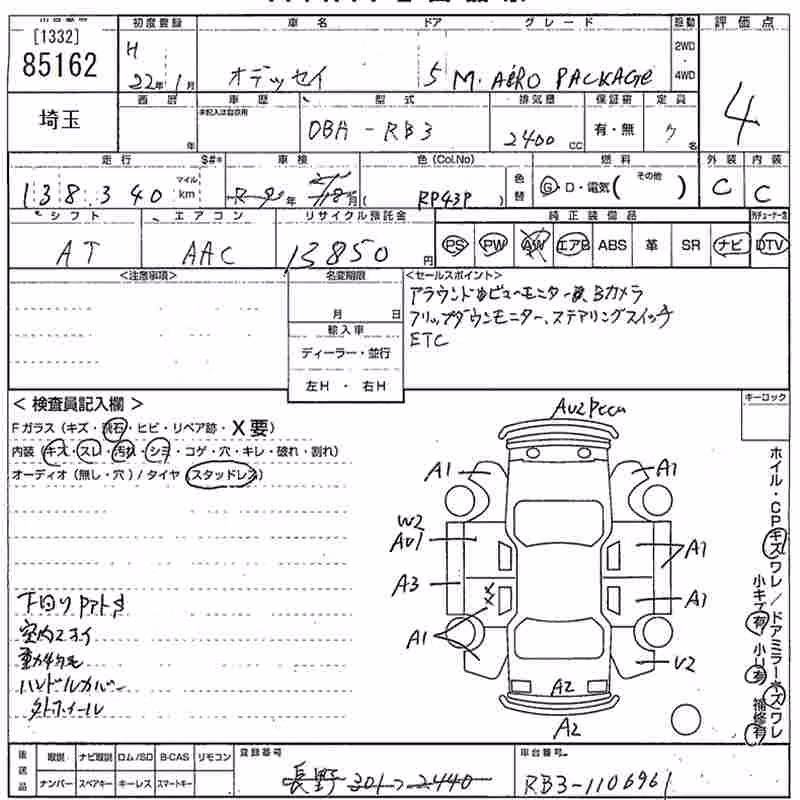 [1332]
85162
埼玉
初度登録 車名 ドア グレード 駆動 評価点
H 22年1月 オデッセイ 5 M. AERO PACKAGE 2WD・4WD 4
西暦 車歴 型式 排気量 保証書 定員
年 未記入は自家用 DBA-RB3 2400cc 有・無 7名
走行 $#* 車検 色(Col.No) 燃料 外装 内装
138,340 マイル km 年 月 ( RP43P ) 色替 G・D・電気( その他 ) C C
シフト エアコン リサイクル預託金 純正装備品
AT AAC 13850円 PS PW AW エアB ABS 革 SR ナビ DTV
<注意事項> 名変期限 <セールスポイント>
月 日
輸入車
ディーラー・並行
左H・右H
フリップダウンモニター、ステアリングスイッチ
ETC
<検査員記入欄> キーロック
Fガラス(キズ・飛石・ヒビ・リペア跡・X要)
内装(キズ・スレ・汚れ・シミ・コゲ・穴・キレ・破れ・割れ)
オーディオ(無し・穴)/タイヤ(スタッドレス)
下回り
ハンドルカバー
A1 A1
W2
AU1 A1
A3 A1
A1 U2
A2
A2
ホイル・CPキズワレ/ドアミラーキズワレ
小キズ有 小U有 補修有
後送品 取説 ナビ取説 ロム/SD B-CAS リモコン 登録番号 車台番号
ナンバー スペアキー キーレス スマートキー 長野 301 2440 RB3-1106961